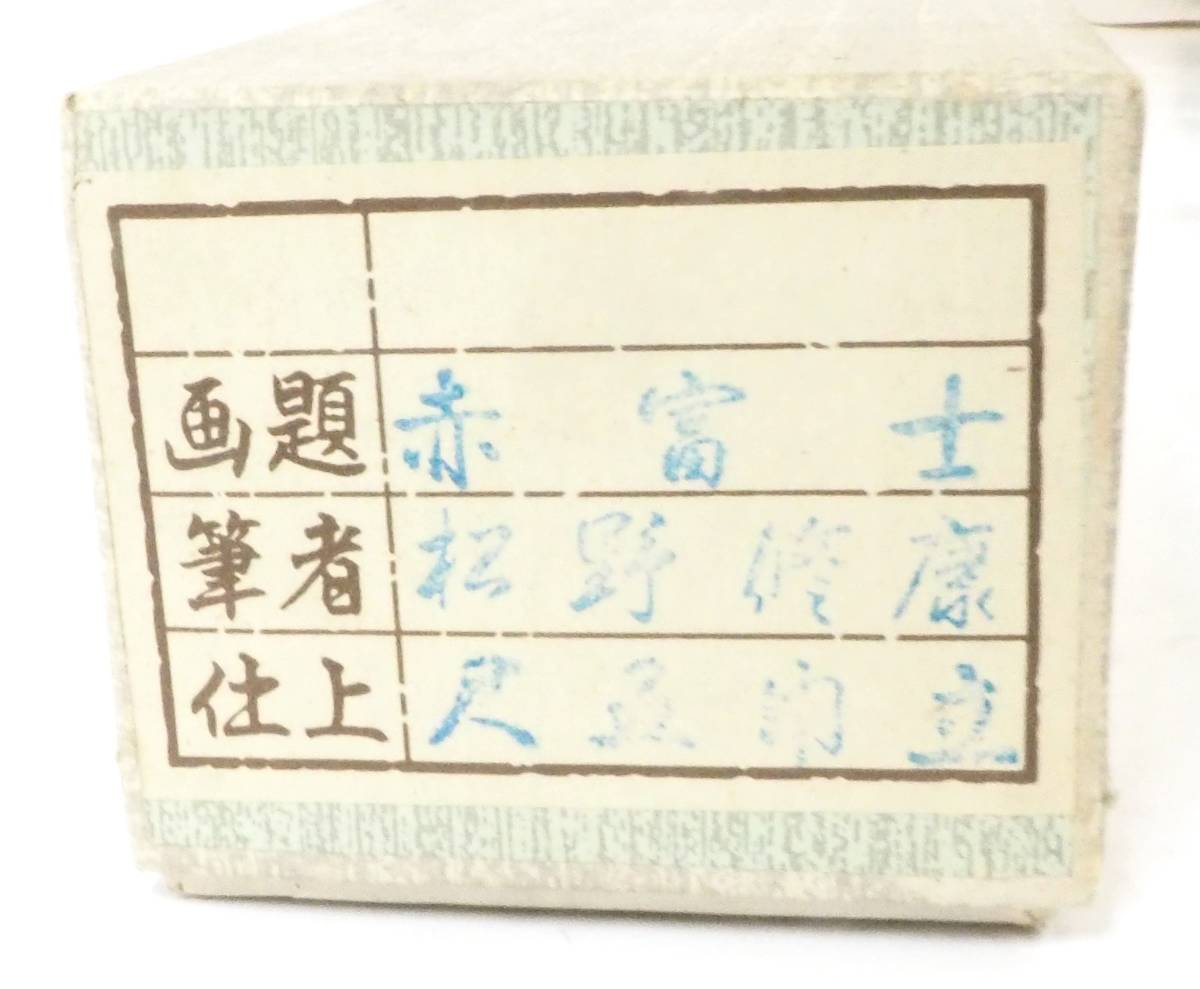 画題 赤富士
筆者 松野修康
仕上 尺五内立